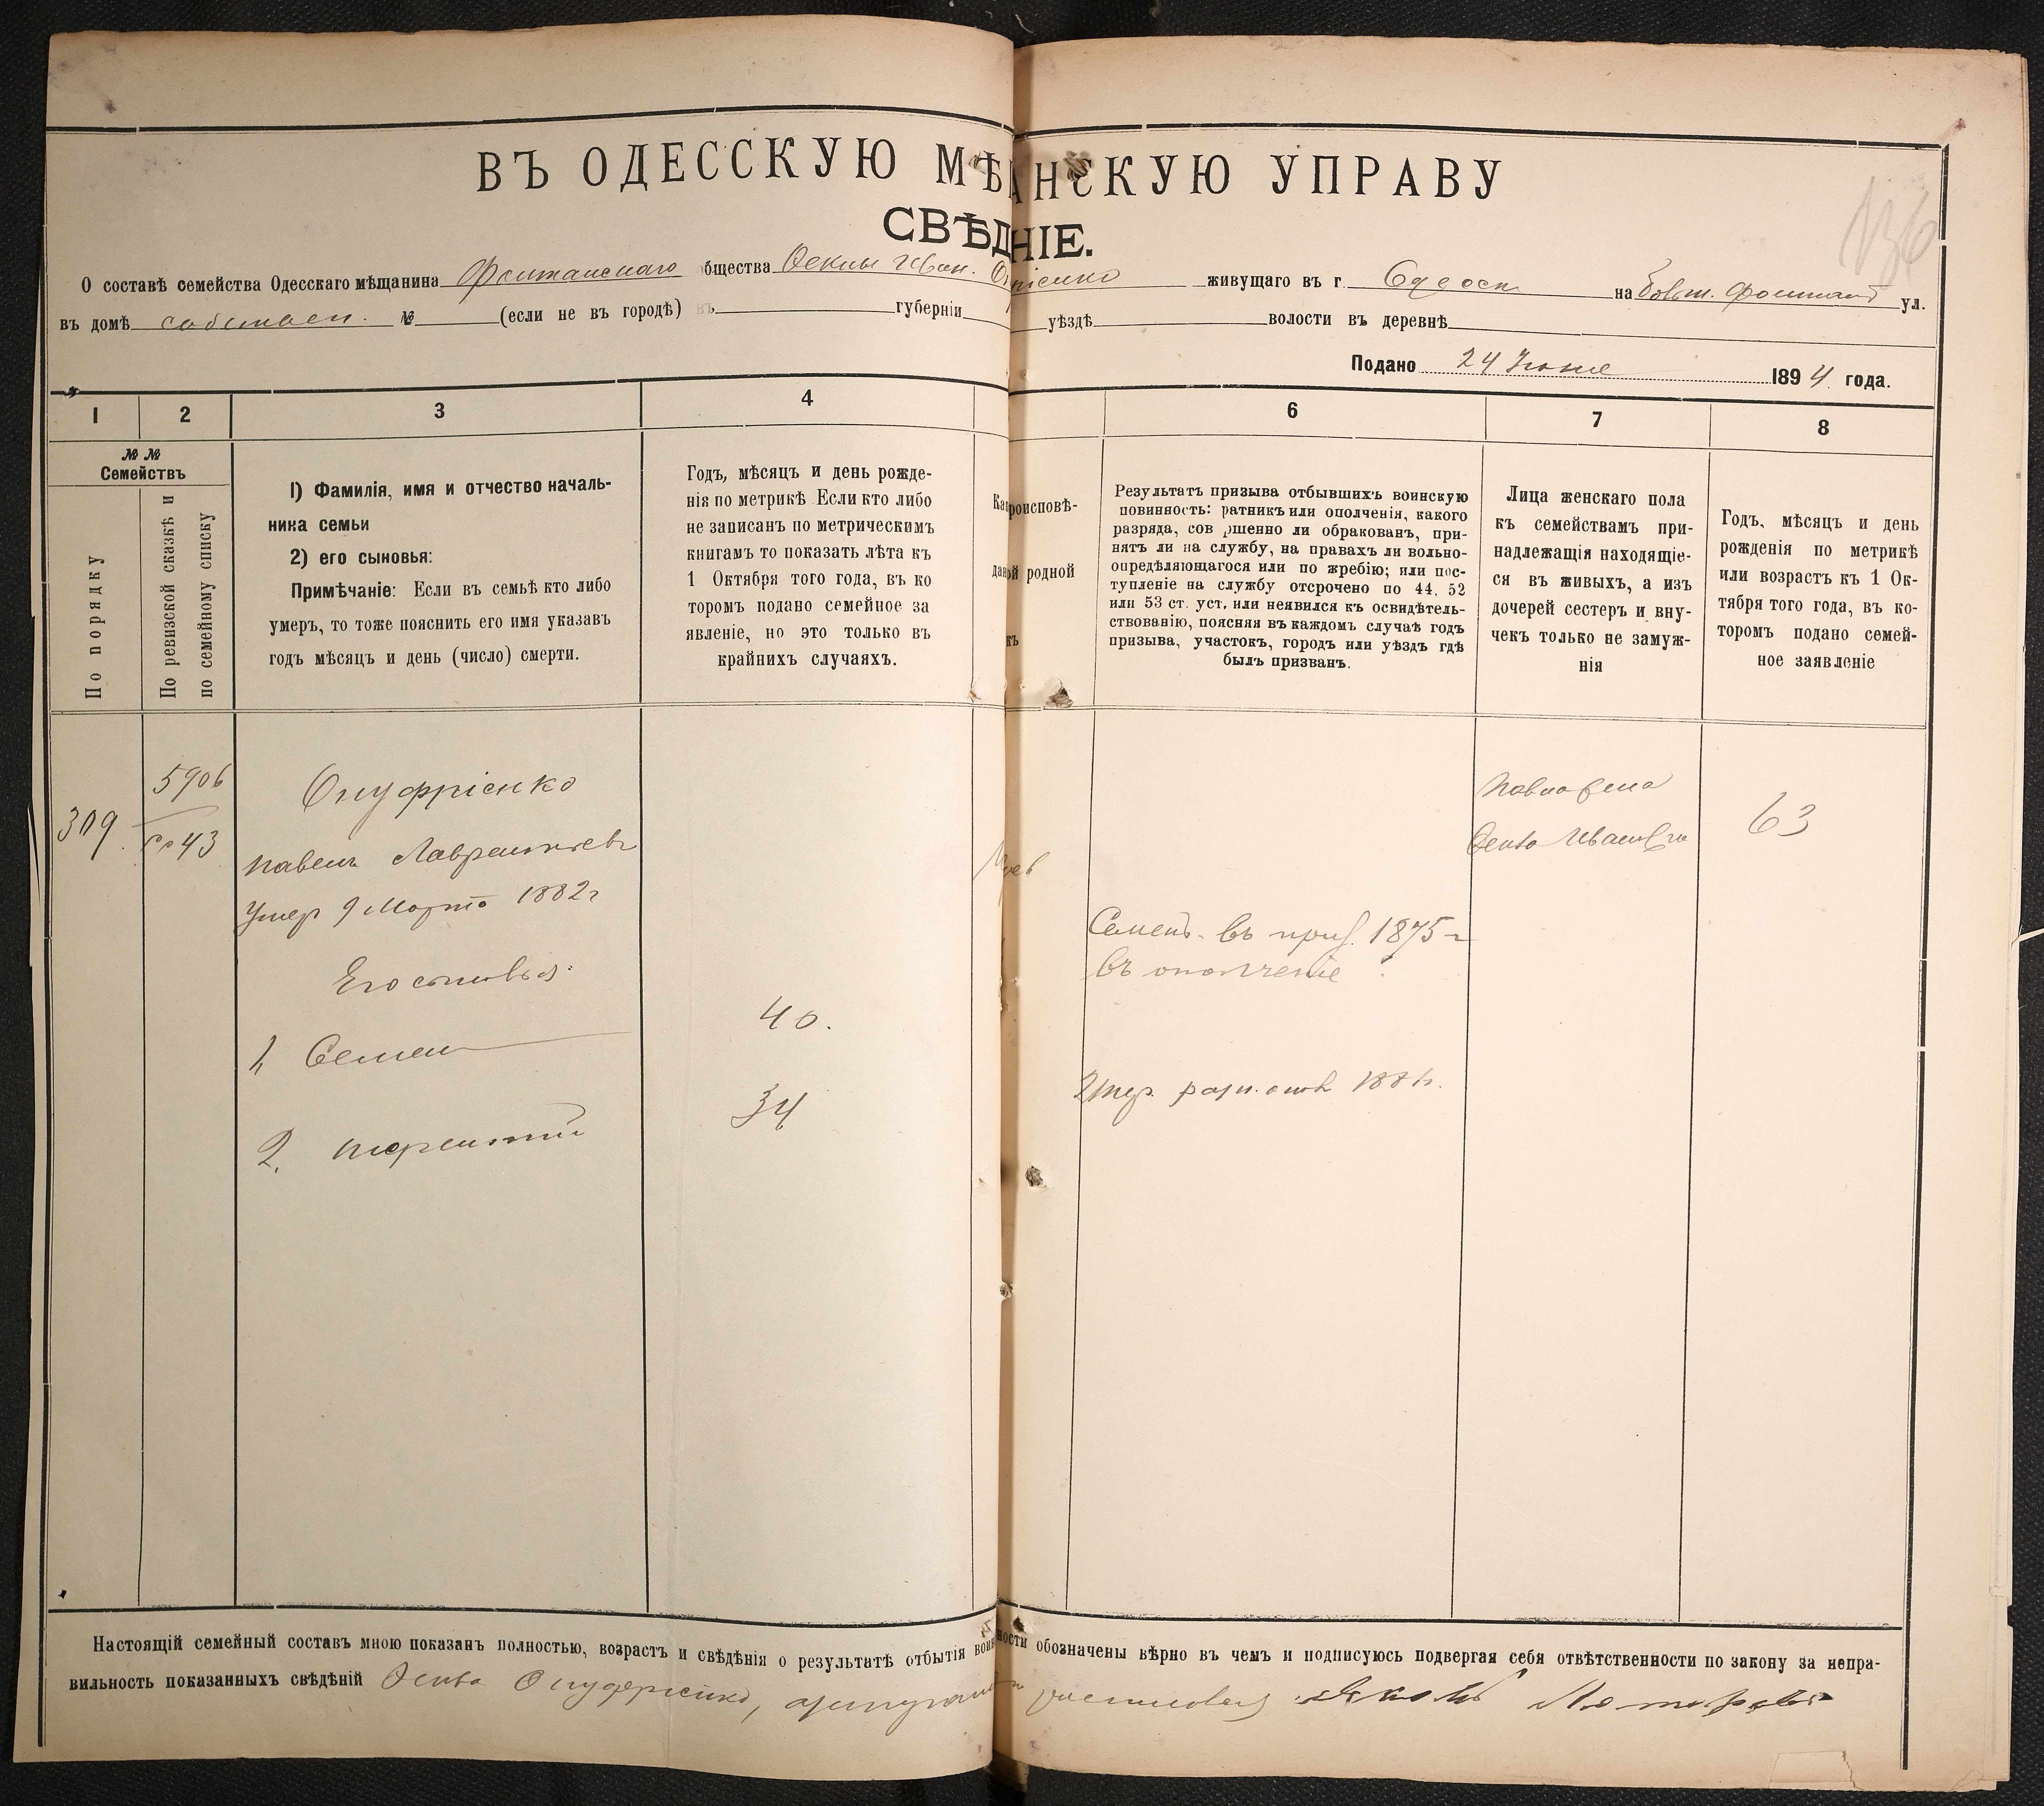 ВЪ ОДЕССКУЮ МѢ АНСКУЮ УПРАВУ
СВѢД НІЕ.
136
О составѣ семейства Одесскаго мѣщанина Фонтанскаго общества Феклы Иван. живущаго въ г. Одессѣ на Больш. Фонтанѣ ул.
въ домѣ собствен. № (если не въ городѣ) въ губерніи уѣздѣ волости въ деревнѣ
Подано 24 Іюня 1894 года.
1 2 3 4 6 7 8
№ № Семействъ
По порядку
По ревизской сказкѣ и
по семейному списку
1) Фамилія, имя и отчество началь-
ника семьи
2) его сыновья:
Примѣчаніе: Если въ семьѣ кто либо
умеръ, то тоже пояснить его имя указавъ
годъ мѣсяцъ и день (число) смерти.
Годъ, мѣсяцъ и день рожде-
нія по метрикѣ Если кто либо
не записанъ по метрическимъ
книгамъ то показать лѣта къ
1 Октября того года, въ ко
торомъ подано семейное за
явленіе, но это только въ
крайнихъ случаяхъ.
роисповѣ-
родной
Результатъ призыва отбывшихъ воинскую
повинность: ратникъ или ополченія, какого
разряда, сов ршенно ли обракован, при-
нятъ ли на службу, на правахъ ли вольно-
опредѣляющагося или по жребію; или пос-
тупленіе на службу отсрочено по 44, 52
или 53 ст. уст. или неявился къ освидѣтель-
ствованію, поясняя въ каждомъ случаѣ годъ
призыва, участокъ, городъ или уѣздъ гдѣ
былъ призванъ.
Лица женскаго пола
къ семействамъ при-
надлежащія находящіе-
ся въ живыхъ, а изъ
дочерей сестеръ и вну-
чекъ только не замуж-
нія
Годъ, мѣсяцъ и день
рожденія по метрикѣ
или возрастъ къ 1 Ок-
тября того года, въ ко-
торомъ подано семей-
ное заявленіе
309
5906
43
Онуфріенко
Павелъ Лаврентьевъ
Умер 9 Марта 1882г
Его сыновья:
1, Семен
40.
2. Терентий
34
Семенъ въ приз. 1875 г
въ ополченіе
Павла жена
Фекла Ивановна
63
Настоящій семейный составъ мною показанъ полностью, возрастъ и свѣдѣнія о результатѣ отбытія воин ности обозначены вѣрно въ чемъ и подписуюсь подвергая себя отвѣтственности по закону за непра-
вильность показанныхъ свѣдѣній Фекла Онуфріенко,